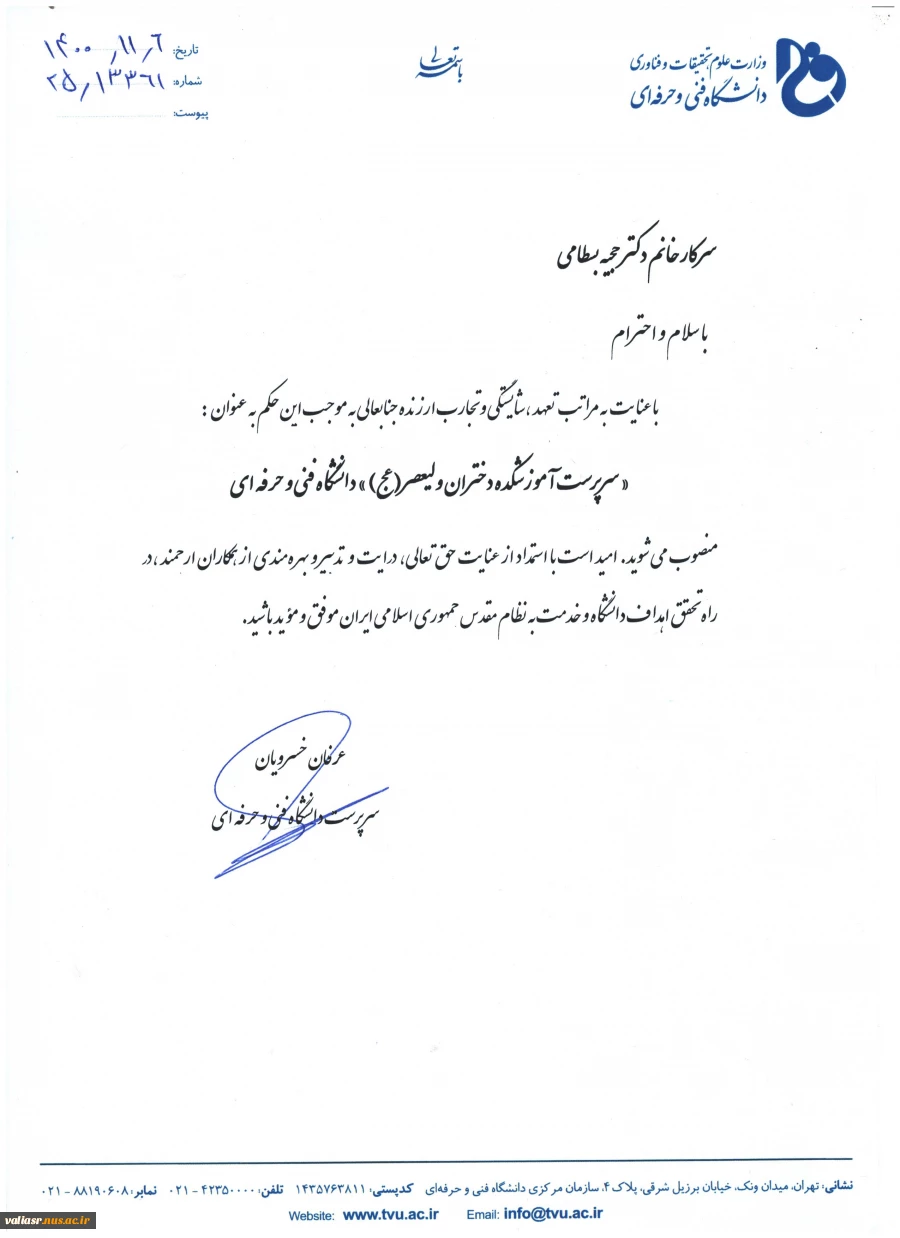 باسمه تعالی
وزارت علوم تحقیقات و فناوری
دانشگاه فنی و حرفه‌ای
تاریخ: ۱۴۰۰/۱۱/۶
شماره: ۲۵/۱۳۳۶۱
پیوست:
سرکار خانم دکتر حجیه بسطامی
با سلام و احترام
با عنایت به مراتب تعهد، شایستگی و تجارب ارزنده جنابعالی به موجب این حکم به عنوان :
« سرپرست آموزشکده دختران ولیعصر(عج)» دانشگاه فنی و حرفه ای
منصوب می شوید. امید است با استمداد از عنایت حق تعالی، درایت و تدبیر و بهره مندی از همکاران ارجمند ، در
راه تحقق اهداف دانشگاه و خدمت به نظام مقدس جمهوری اسلامی ایران موفق و مؤید باشید.
عرفان خسرویان
سرپرست دانشگاه فنی و حرفه ای
نشانی: تهران، میدان ونک، خیابان برزیل شرقی، پلاک ۴، سازمان مرکزی دانشگاه فنی و حرفه‌ای کدپستی: ۱۴۳۵۷۶۳۸۱۱ تلفن: ۴۲۳۵۰۰۰۰ - ۰۲۱ نمابر: ۸۸۱۹۰۶۰۸ - ۰۲۱
Website: www.tvu.ac.ir Email: info@tvu.ac.ir
valiasr.nus.ac.ir